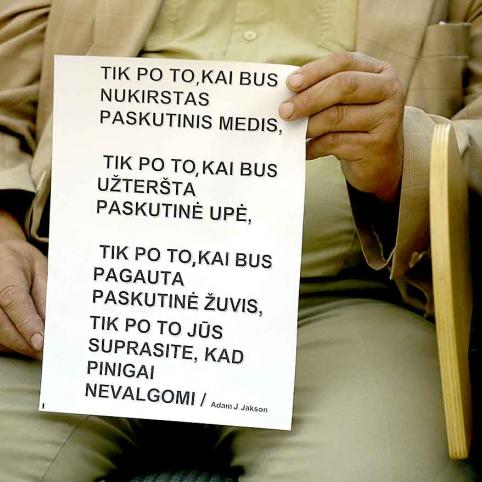 TIK PO TO,KAI BUS
NUKIRSTAS
PASKUTINIS MEDIS,
TIK PO TO,KAI BUS
UŽTERŠTA
PASKUTINĖ UPĖ,
TIK PO TO,KAI BUS
PAGAUTA
PASKUTINĖ ŽUVIS,
TIK PO TO JŪS
SUPRASITE, KAD
PINIGAI
NEVALGOMI / Adam J Jakson